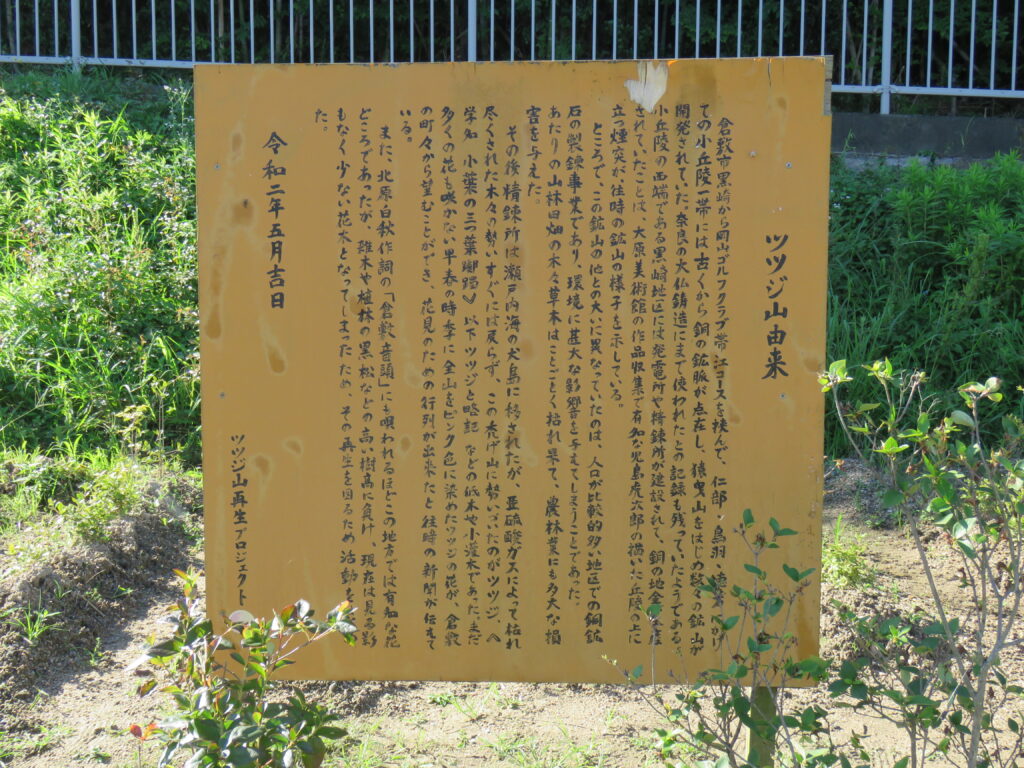 ツツジ山由来
倉敷市黒崎から岡山ゴルフクラブ帯江コースを挟んで、仁部、鳥羽、
ての小丘陵一帯には古くから銅の鉱脈が点在し、猿曳山をはじめ数々の鉱山が
開発されていた。奈良の大仏鋳造にまで使われたとの記録も残っていたようである。
小丘陵の西端である黒崎地区には発電所や精錬所が建設されて、銅の地金
されていたことは、大原美術館の作品収集で有名な児島虎次郎の描いた丘陵の上に
立つ煙突が往時の鉱山の様子を示している。
ところで、この鉱山の他との大いに異なっていたのは、人口が比較的多い地区での銅鉱
石の製錬事業であり、環境に甚大な影響を与えてしまうことであった。
あたりの山林田畑の木々草本はことごとく枯れ果て、農林業にも多大な損
害を与えた。
その後精錬所は瀬戸内海の犬島に移されたが、亜硫酸ガスによって枯れ
尽くされた木々の勢いすぐには戻らず、この禿げ山に勢いづいたのがツツジ、《
学知 小葉の三つ葉躑躅》 以下ツツジと略記 などの低木や小灌木であった。まだ
多くの花も咲かない早春の時季に全山をピンク色に染めたツツジの花が、倉敷
の町々から望むことができ、花見のための行列が出来たと往時の新聞が伝えて
いる。
また、北原白秋作詞の「倉敷音頭」にも唄われるほどこの地方では有名な花
どころであったが、雑木や植林の黒松などの高い樹高に負け、現在は見る影
もなく少ない花木となってしまったため、その再生を図るため活動を
た。
令和二年五月吉日
ツツジ山再生プロジェクト